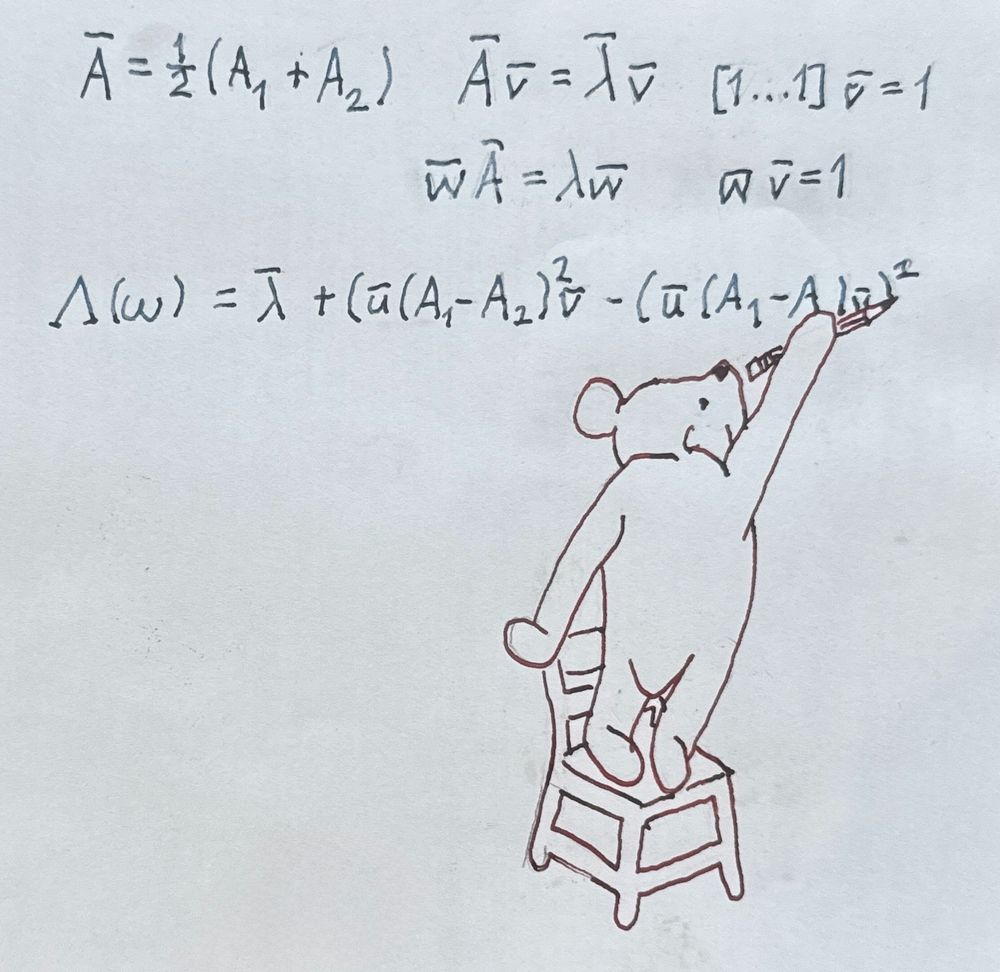 Ā = ½(A₁ + A₂)  Ā v̄ = λ̄ v̄  [1...1] v̄ = 1
w̄ Ā = λ w̄  w̄ v̄ = 1
Λ(ω) = λ̄ + (ū(A₁-A₂)²v̄ - (ū(A₁-A )v̄)²